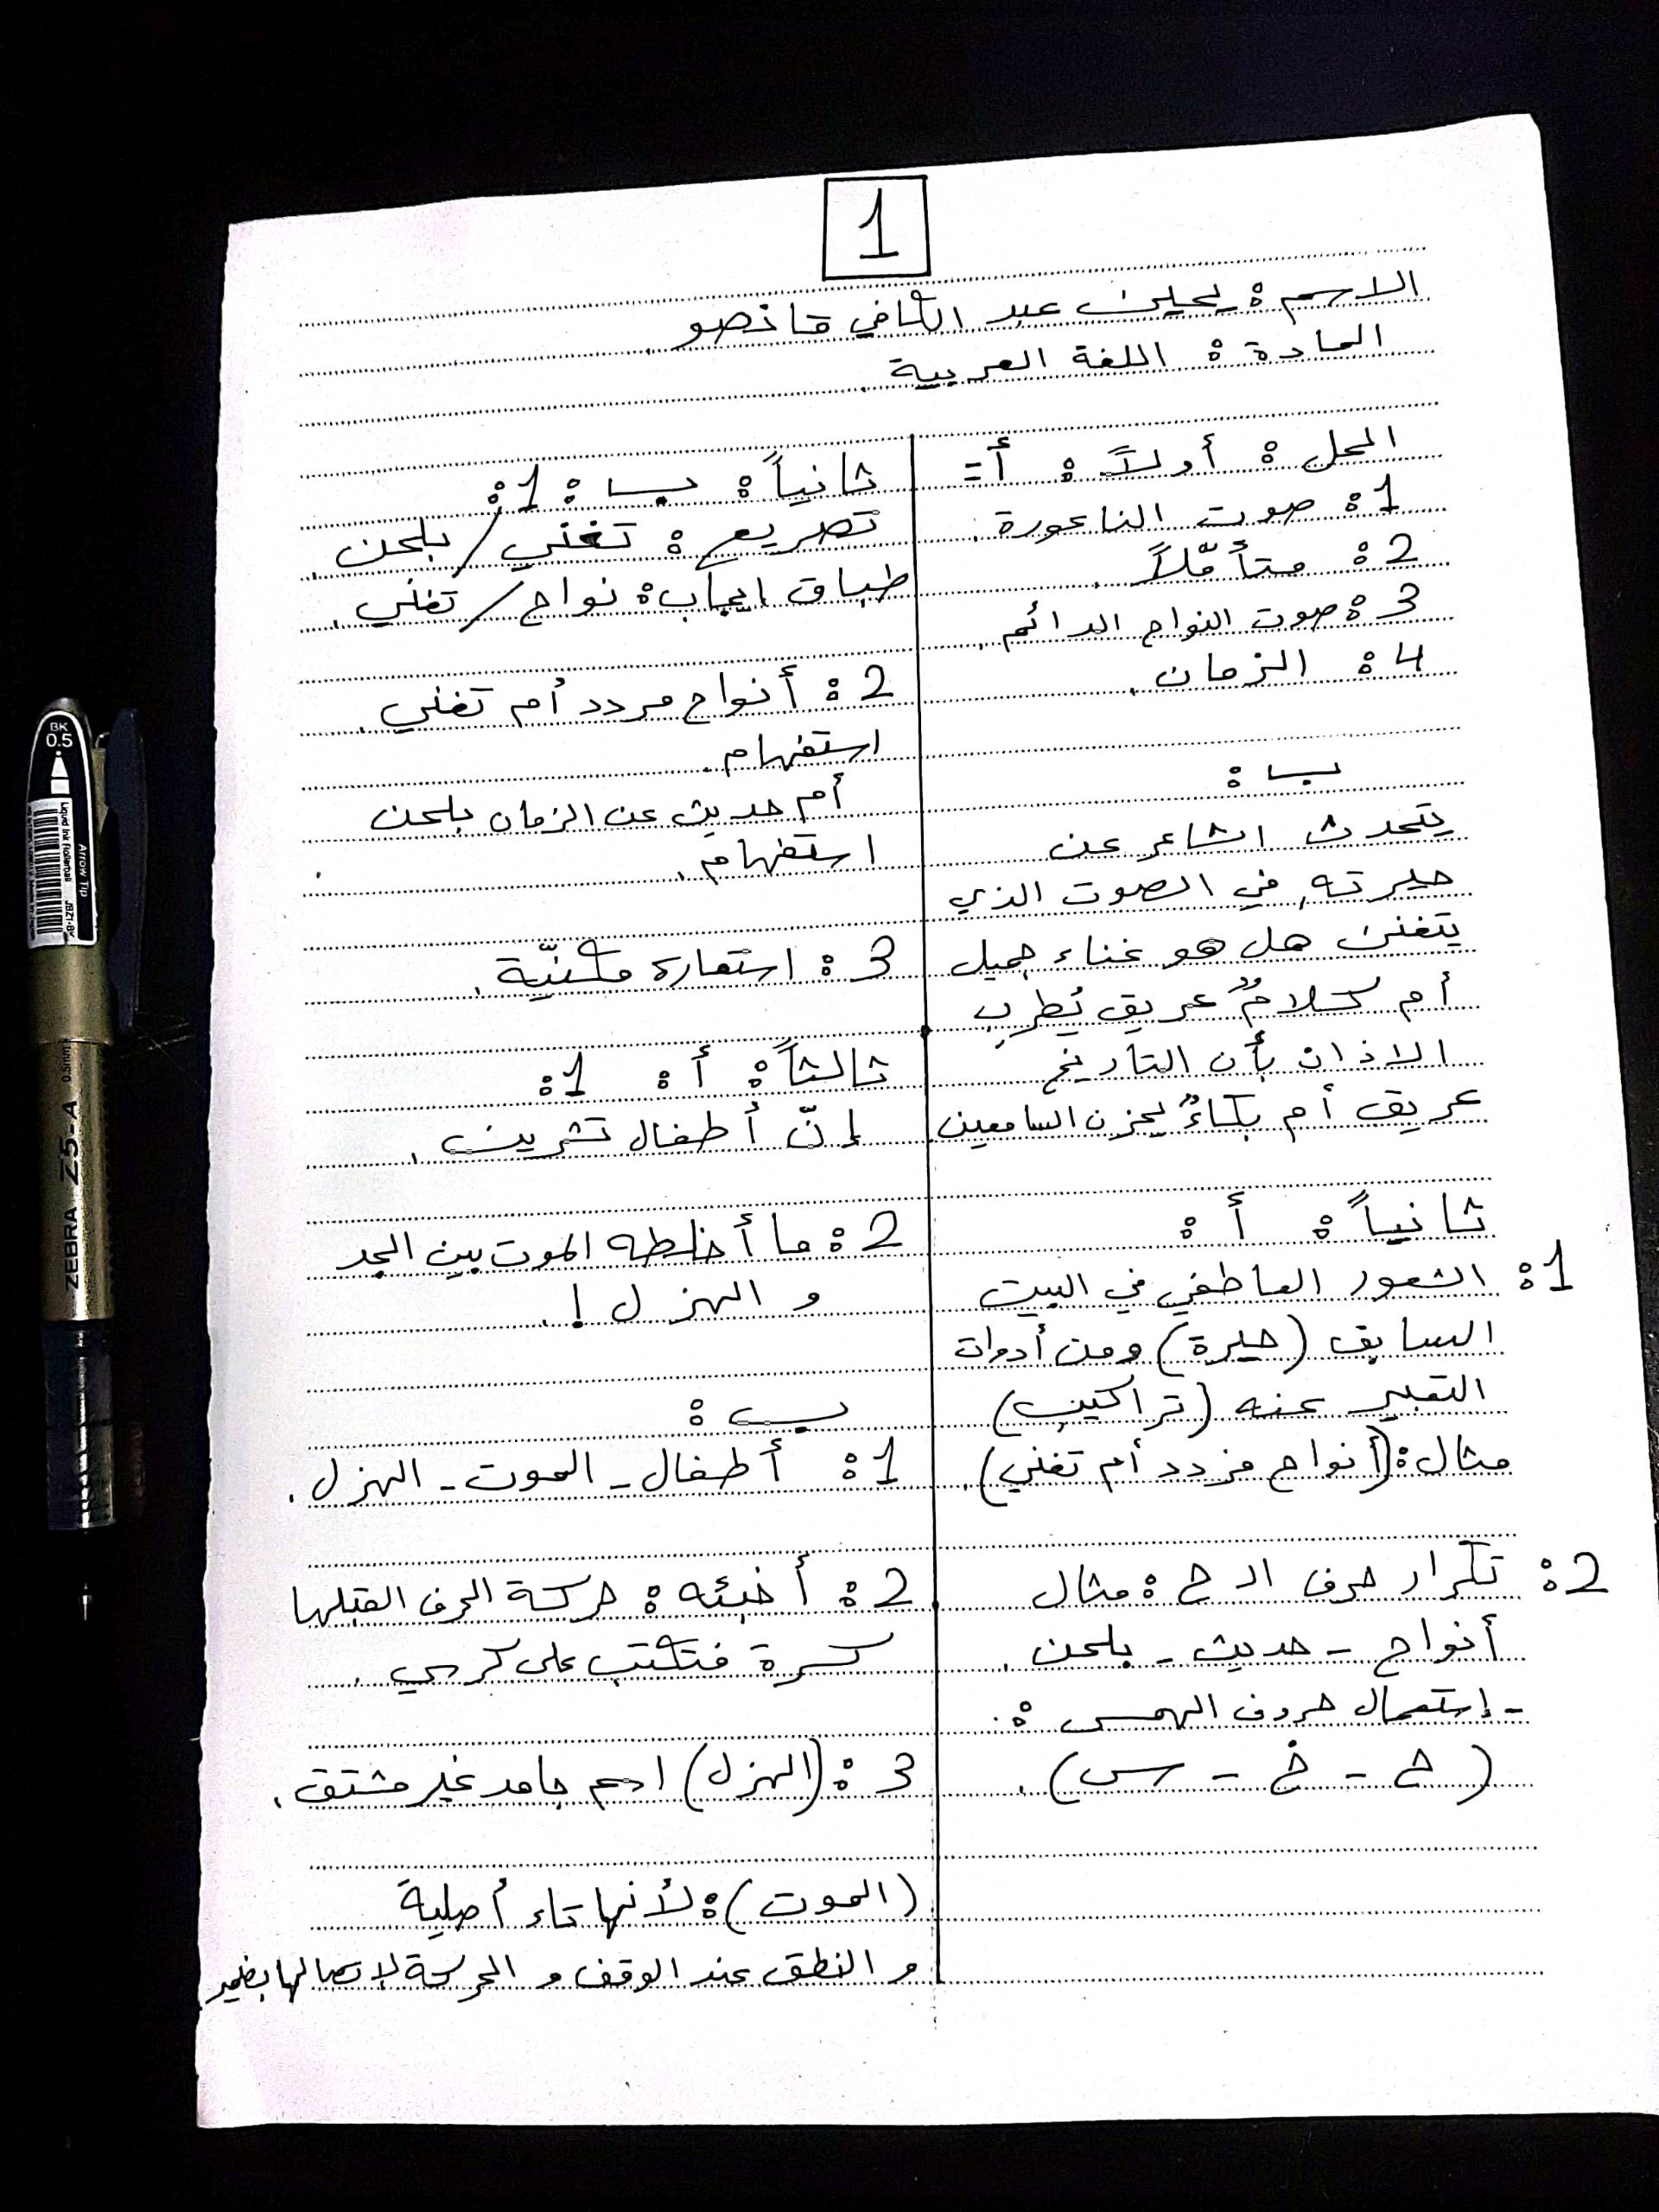 1
الاسم: يحيى عبد الكافي قانصو
المادة: اللغة العربية
الحل: أولاً: أ-
1: صوت الناعورة.
2: متأمّلاً.
3: صوت النواح الدائم.
4: الزمان.
ب:
يتحدث الشاعر عن
حيرته في الصوت الذي
يتغنى هل هو غناء جميل
أم كلامٌ عريق يُطرب
الاذان بأن التاريخ
عريق أم بكاءٌ يحزن السامعين
ثانياً: أ:
1: الشعور العاطفي في البيت
السابق (حيرة) ومن أدوات
التعبير عنه (تراكيب)
مثال: (أنواح مردد أم تغني).
2: تكرار حرف الـ ح: مثال
أنواح - حديث - بلحن.
- إستعمال حروف الهمس:
(ح - خ - س).
ثانياً: ب: 1:
تصريع: تغني / بلحن.
طباق ايجاب: نواح / تغني.
2: أنواح مردد أم تغني.
استفهام.
أم حديث عن الزمان بلحن
استفهام.
3: استعارة مكنيّة.
ثالثاً: أ: 1:
إنّ أطفال تشرين.
2: ما أخلطه الموت بين الجد
و الهزل!
ب:
1: أطفال - الموت - الهزل.
2: أخبئه: حركة الحرف القبلها
كسرة فتكتب على كرسي.
3: (الهزل) اسم جامد غير مشتق.
(الموت): لأنها تاء أصلية
و النطق عند الوقف و الحركة لاتصالها بضمير
BK
0.5
Arrow Tip
Liquid Ink Rollerball
JBZ1-BK
ZEBRA Z5-A 0.5mm